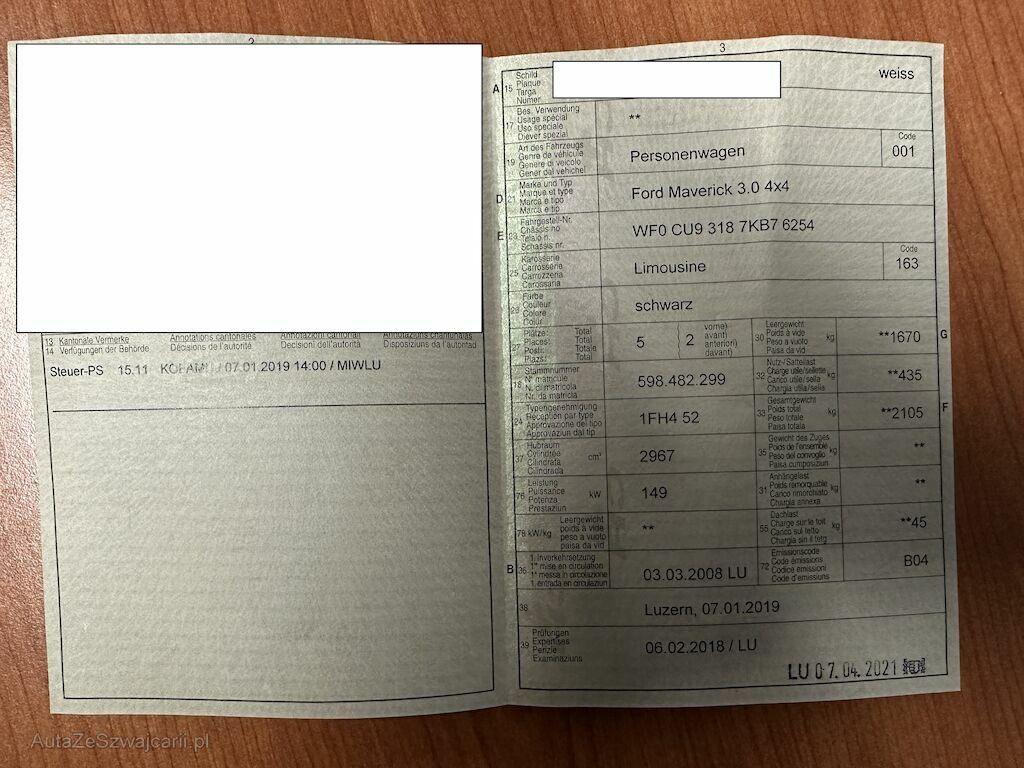 2
13 Kantonale Vermerke Annotations cantonales Annotazioni cantonali Annotaziuns chantunalas
14 Verfügungen der Behörde Décisions de l'autorité Decisioni dell'autorità Disposiziuns da l'autoritad
Steuer-PS 15.11 / 07.01.2019 14:00 / MIWLU
3
A 15 Schild
Plaque
Targa
Numer
weiss
17 Bes. Verwendung
Usage spécial
Uso speciale
Diever spezial
**
19 Art des Fahrzeugs
Genre de véhicule
Genere di veicolo
Gener dal vehichel
Personenwagen
Code
001
D 21 Marke und Typ
Marque et type
Marca e tipo
Marca e tip
Ford Maverick 3.0 4x4
E 23 Fahrgestell-Nr.
Châssis no
Telaio n.
Schassis nr.
WF0 CU9 318 7KB7 6254
25 Karosserie
Carrosserie
Carrozzeria
Carossaria
Limousine
Code
163
26 Farbe
Couleur
Colore
Colur
schwarz
27 Plätze: Total
Places: Total
Posti: Totale
Plazs: Total
5 ( 2 vorne)
avant)
anteriori)
davant)
30 Leergewicht
Poids à vide
Peso a vuoto
Paisa da vid
kg
**1670 G
18 Stammnummer
N° matricule
N. di matricola
Nr. da matricla
598.482.299
32 Nutz-/Sattellast
Charge utile/sellette
Carico utile/sella
Chargia utila/sella
kg
**435
24 Typengenehmigung
Réception par type
Approvazione del tipo
Approvaziun dal tip
1FH4 52
33 Gesamtgewicht
Poids total
Peso totale
Paisa totala
kg
**2105 F
37 Hubraum
Cylindrée
Cilindrata
Cilindrada
cm³
2967
35 Gewicht des Zuges
Poids de l'ensemble
Peso del convoglio
Paisa cumposiziun
kg
**
76 Leistung
Puissance
Potenza
Prestaziun
kW
149
31 Anhängelast
Poids remorquable
Carico rimorchiato
Chargia annexa
kg
**
78 kW/kg Leergewicht
poids à vide
peso a vuoto
paisa da vid
**
55 Dachlast
Charge sur le toit
Carico sul tetto
Chargia sin il tetg
kg
**45
B 36 1. Inverkehrsetzung
1re mise en circulation
1a messa in circolazione
1. entrada en circulaziun
03.03.2008 LU
72 Emissionscode
Code émissions
Codice emissioni
Code d'emissiuns
B04
38
Luzern, 07.01.2019
39 Prüfungen
Expertises
Perizie
Examinaziuns
06.02.2018 / LU
LU 07. 04. 2021
AutaZeSzwajcarii.pl